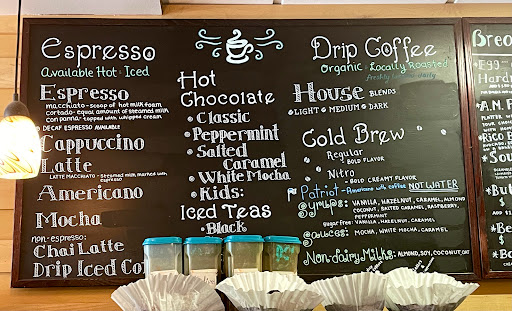 Espresso
Available Hot & Iced
Espresso
macchiato - scoop of hot milk foam
cortado - equal amount of steamed milk
con panna - topped with whipped cream
DECAF ESPRESSO AVAILABLE
Cappuccino
Latte
LATTE MACCHIATO - steamed milk marked with
espresso
Americano
Mocha
non-espresso:
Chai Latte
Drip Iced Co
Hot
Chocolate
• Classic
• Peppermint
• Salted
Caramel
• White Mocha
• Kids:
Iced Teas
• Black
Drip Coffee
Organic & Locally Roasted
freshly daily
House BLENDS
• LIGHT • MEDIUM • DARK
Cold Brew
Regular
BOLD FLAVOR
Nitro
BOLD CREAMY FLAVOR
Patriot - Americano with coffee NOT WATER
Syrups: VANILLA, HAZELNUT, CARAMEL, ALMOND
COCONUT, SALTED CARAMEL, RASPBERRY,
PEPPERMINT
sugar free: VANILLA, HAZELNUT, CARAMEL
Sauces: MOCHA, WHITE MOCHA, CARAMEL
Non-dairy Milks: ALMOND, SOY, COCONUT, OAT
Brea
Egg
Hard
A.M.
PLATTER
YOUR
WITH
Rico
Sou
But
ADD
Be
Ba